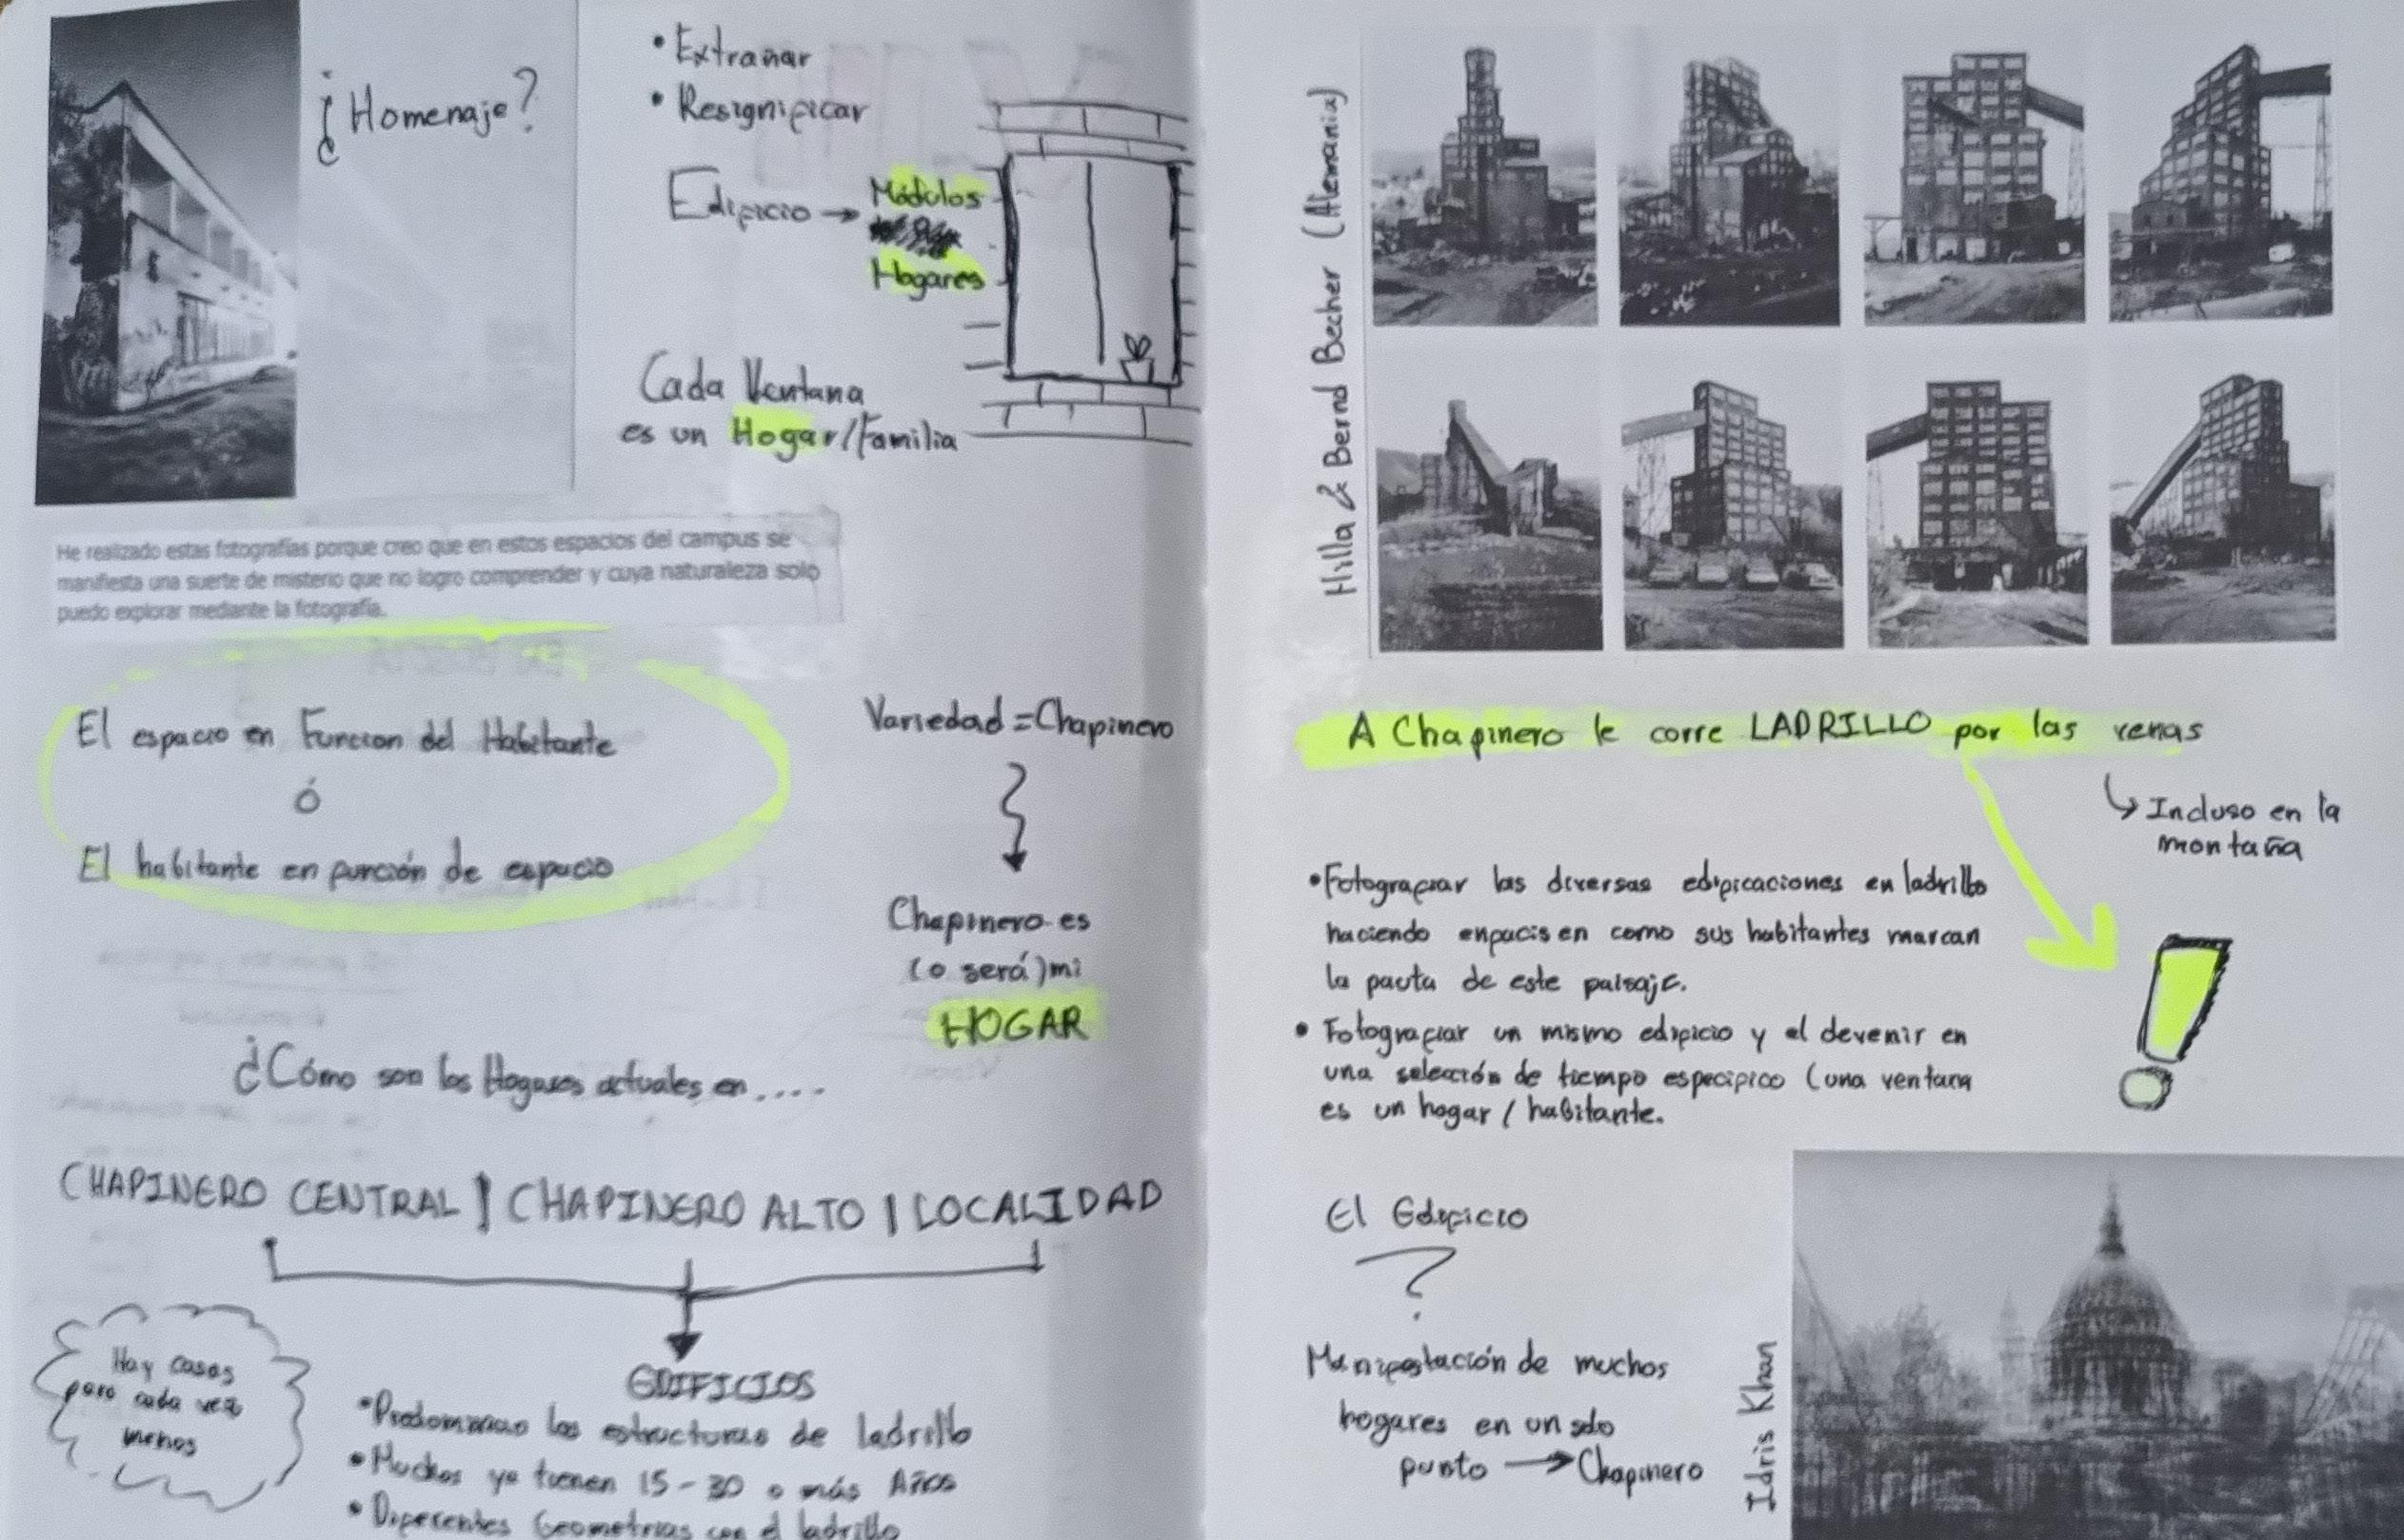 ¿Homenaje?
• Extrañar
• Resignificar
Edificio → Módulos
Hogares
Cada Ventana
es un Hogar/Familia
He realizado estas fotografías porque creo que en estos espacios del campus se
manifiesta una suerte de misterio que no logro comprender y cuya naturaleza solo
puedo explorar mediante la fotografía.
El espacio en Funcion del Habitante
ó
El habitante en función de espacio
Variedad = Chapinero
Chapinero es
(o será) mi
HOGAR
¿Cómo son los Hogares actuales en....
CHAPINERO CENTRAL | CHAPINERO ALTO | LOCALIDAD
Hay casas
pero cada vez
menos
EDIFICIOS
• Predominan las estructuras de ladrillo
• Muchos ya tienen 15-30 o más Años
• Diferentes Geometrias con el ladrillo
Hilla & Bernd Becher (Alemania)
A Chapinero le corre LADRILLO por las venas
↳ Incluso en la
montaña
• Fotografiar las diversas edificaciones en ladrillo
haciendo enfacis en como sus habitantes marcan
la pauta de este paisaje.
• Fotografiar un mismo edificio y el devenir en
una selección de tiempo especifico (una ventana
es un hogar / habitante.
El Edificio
?
Manifestación de muchos
hogares en un solo
punto → Chapinero
Idris Khan